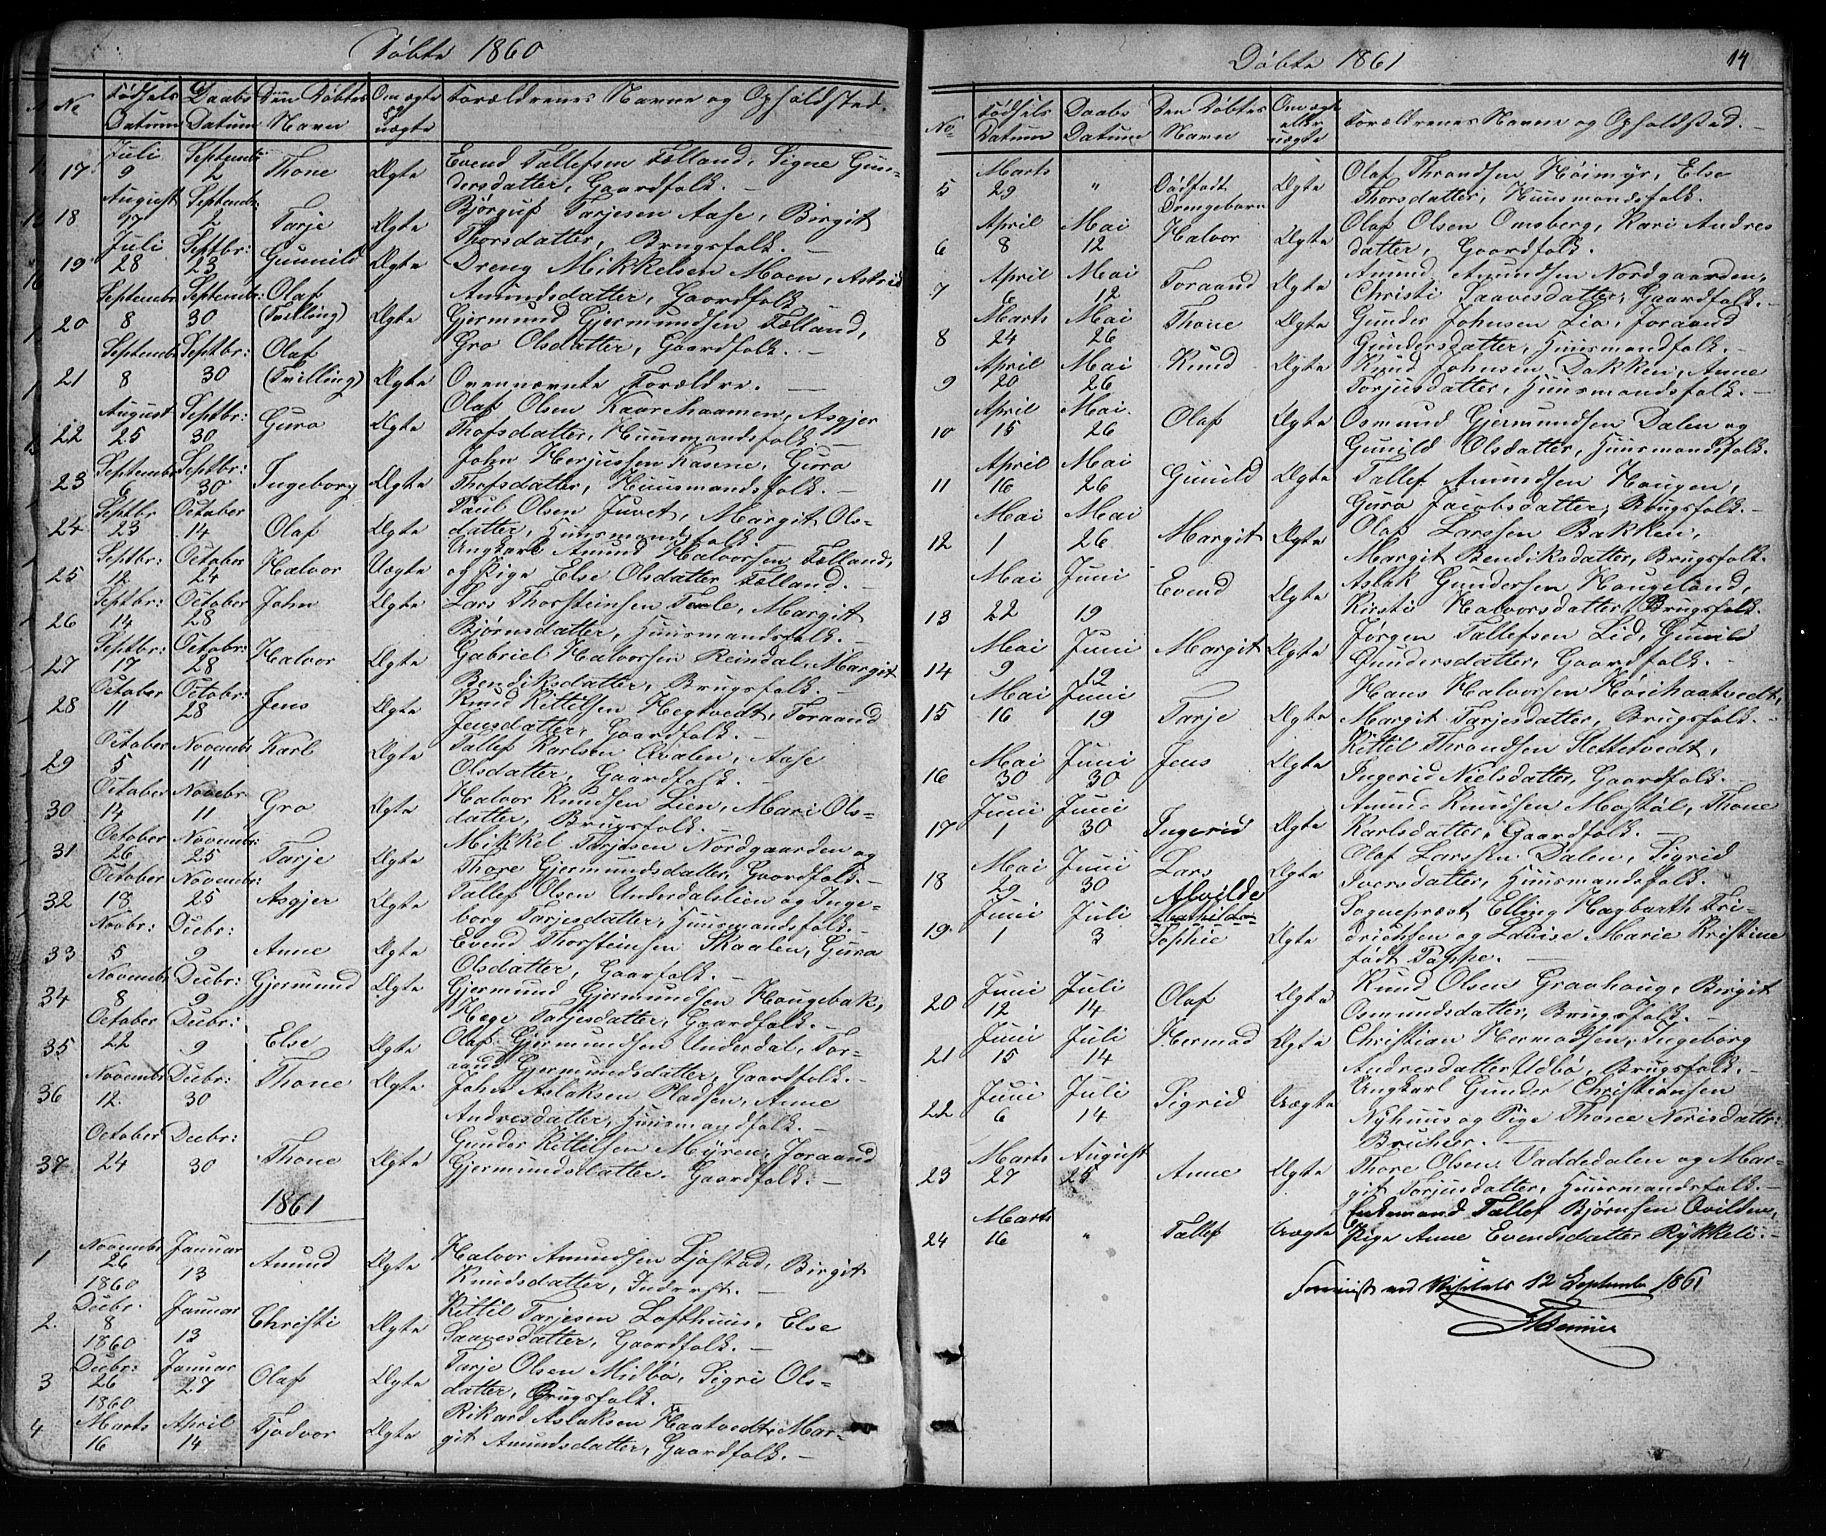 Døbte 1860
No Fødsels Datum Daabs Datum Den Døbtes Navn Om ægte og uægte Forældrenes Navne og Opholdsted.
17 Juli 9 Septembr: 2 Thone Ægte Evend Tallefsen Fælland, Signe Gun-
dersdatter, Gaardfolk. —
18 August 17 Septembr: 2 Tarje Ægte Bjørguf Tarjesen Aase, Birgit
Thorsdatter, Brugsfolk. —
19 Juli 28 Septbr: 23 Gunnild Ægte Dreng Mikkelsen Moen, Astrid
Amundsdatter, Gaardfolk. —
20 Septembr 8 Septembr: 30 Olaf (Tvilling) Ægte Gjermund Gjermundsen Fælland,
Gro Olsdatter, Gaardfolk. —
21 Septembr 8 Septbr: 30 Olaf (Tvilling) Ægte Ovennævnte Forældre. —
22 August 25 Septbr: 30 Guro Ægte Olaf Olsen Kaarehaamen, Asgjer
Thofsdatter, Huusmandsfolk. —
23 Septembr 6 Septbr: 30 Ingeborg Ægte John Herjussen Kasene, Guro
Thofsdatter, Huusmandsfolk. —
24 Septbr 23 October 14 Olaf Ægte Paul Olsen Juvet, Margit Ols-
datter, Huusmandsfolk.
25 Septbr: 12 October 24 Halvor Uægte Ungkarl Amund Halvorsen Fælland,
og Pige Else Olsdatter Fælland. —
26 Septbr: 14 October 28 John Ægte Lars Thorsteinsen Teele, Margit
Bjørnsdatter, Huusmandsfolk. —
27 Septbr: 17 Octobr: 28 Halvor Ægte Gabriel Halvorsen Reindal, Margit
Bendiksdatter, Brugsfolk. —
28 October 11 October: 28 Jens Ægte Knud Kittilsen Hegtvedt, Toraand
Jensdatter, Gaardfolk. —
29 October 5 Novembr 11 Karl Ægte Tallef Karlsen Qvalen, Aase
Olsdatter, Gaardfolk. —
30 October 14 Novbr 11 Gro Ægte Halvor Knudsen Lien, Mari Ols-
datter, Brugsfolk. —
31 October 26 Novembr: 25 Tarje Ægte Mikkel Tarjesen Nordgaarden og
Thore Gjermundsdatter, Gaardfolk. —
32 October 18 Novembr: 25 Asgjer Ægte Tallef Olsen Underdalslien og Inge-
borg Tarjesdatter, Huusmandsfolk. —
33 Novbr: 5 Decbr: 9 Anne Ægte Evend Thorsteinsen Skaalen, Guro
Olsdatter, Gaarfolk. —
34 Novembr 8 Decbr: 9 Gjermund Ægte Gjermund Gjermundsen Haugebak,
Hege Tarjesdatter, Gaardfolk. —
35 October 22 Decbr: 9 Else Ægte Olaf Gjermundsen Underdal, Tor-
aand Gjermundsdatter, Gaardfolk. —
36 Novembr 12 Decbr: 30 Thone Ægte John Aslaksen Pladsen, Anne
Andresdatter, Huusmandfolk. —
37 October 24 Decbr: 30 Thone Ægte Gunder Kittilsen Myren, Joraand
Gjermundsdatter. Gaardfolk. —
1861
1 Novembr 26 1860 Januar 13 Amund Ægte Halvor Amundsen Sjøstad, Birgit
Knudsdatter, Inderst. —
2. Decbr: 8 1860 Januar 13 Christi Ægte Kittil Tarjesen Lofthuus, Else
Saavesdatter, Gaardfolk. —
3 Decbr: 26 1860 Januar 27 Olaf Ægte Tarje Olsen Midbø, Sigri Ols-
datter, Brugsfolk.
4 Marts 16 April 14 Tjodvor Ægte Rikard Aslaksen Haatvedt, Mar-
git Amundsdatter, Gaardfolk. —
Døbte 1861 14
No Fødsels Datum Daabs Datum Den Døbtes Navn Om ægte eller uægte Forældrenes Navn og Opholdsted. —
5 Marts 29 " Dødfødt Drengebarn Ægte Olaf Throndsen Høimyr, Else
Thorsdatter, Huusmandsfolk.
6 April 8 Mai 12 Halvor Ægte Olaf Olsen Omsberg, Kari Andres
datter, Gaardfolk.
7 April 6 Mai 12 Toraand Ægte Amund Amundsen Nordgaarden,
Christi Saavesdatter, Gaardfolk. —
8 Marts 24 Mai 26 Thone Ægte Gunder Johnsen Lio, Joraand
Gundersdatter, Huusmandfolk. —
9 April 20 Mai 26 Knud Ægte Knud Johnsen Bakken, Anne
Torjusdatter, Huusmandsfolk. —
10 April 15 Mai. 26 Olaf Ægte Osmund Gjermundsen Dalen og
Gunild Olsdatter, Huusmandsfolk.
11 April 16 Mai 26 Gunild Ægte Tallef Amundsen Haugen,
Guro Jacobsdatter, Brugsfolk. —
12 Mai 1 Mai 26 Margit Ægte Olaf Larssen Bakken,
Margit Bendiksdatter, Brugsfolk. —
13 Mai 22 Juni 19 Evend Ægte Aslak Gundersen Haugeland,
Kirsti Halvorsdatter, Brugsfolk.
14 Mai 9 Juni 19 Margit Ægte Jørgen Tallefsen Lid, Gunild
Gundersdatter, Gaardfolk. —
15 Mai 16 Juni 19 Tarje Ægte Hans Halvorsen Høiehaatvedt,
Margit Tarjesdatter, Brugsfolk. —
16 Mai 30 Juni 30 Jens Ægte Kittil Throndsen Slettetvedt,
Ingerid Nielsdatter, Gaardfolk. —
17 Juni 1 Juni 30 Ingerid Ægte Amund Knudsen Mostøl, Thone
Karlsdatter, Gaardfolk. —
18 Mai 29 Juni 30 Lars Ægte Olaf Larssen Dalen, Sigrid
Iversdatter, Huusmandsfolk.
19 Juni 1 Juli 3 Alvilde Mathilde Sophie Ægte Sognepræst Elling Hagbarth Fri-
drichsen og Lovise Marie Kristine
født Tappe. —
20 Juni 12 Juli 14 Olaf Ægte Knud Olsen Graahaug, Birgit
Osmundsdatter, Brugsfolk. —
21 Juni 15 Juli 14 Hermod Ægte Christian Hermodsen, Ingeborg
Andresdatter Udbø, Brugsfolk. —
22 Juni 6 Juli 14 Sigrid Uægte Ungkarl Gunder Christiansen
Nyhuus og Pige Thone Norisdattr:
Bruheer. —
23 Marts 27 August 25 Anne Ægte Thore Olsen Vaddedalen og Mar-
git Torjusdatter, Huusmandsfolk. —
24 Marts 16 " Tallef Uægte Enkemand Tallef Bjørnsen Qvildne,
Pige Anne Evendsdatter Rykkeli. —
ved Visitats 12 September 1861